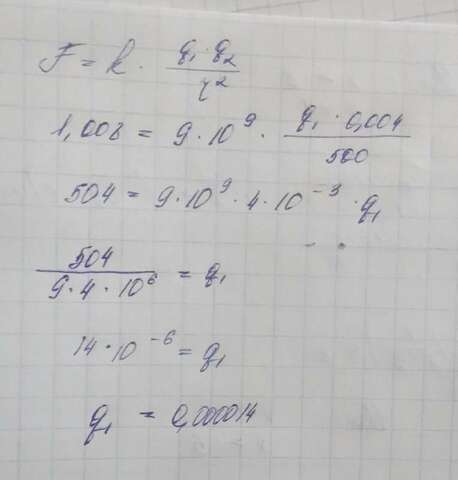 F = k · q₁·q₂ / r²
1,008 = 9·10⁹ · q₁·0,004 / 500
504 = 9·10⁹·4·10⁻³·q₁
504 / 9·4·10⁶ = q₁
14·10⁻⁶ = q₁
q₁ = 0,000014